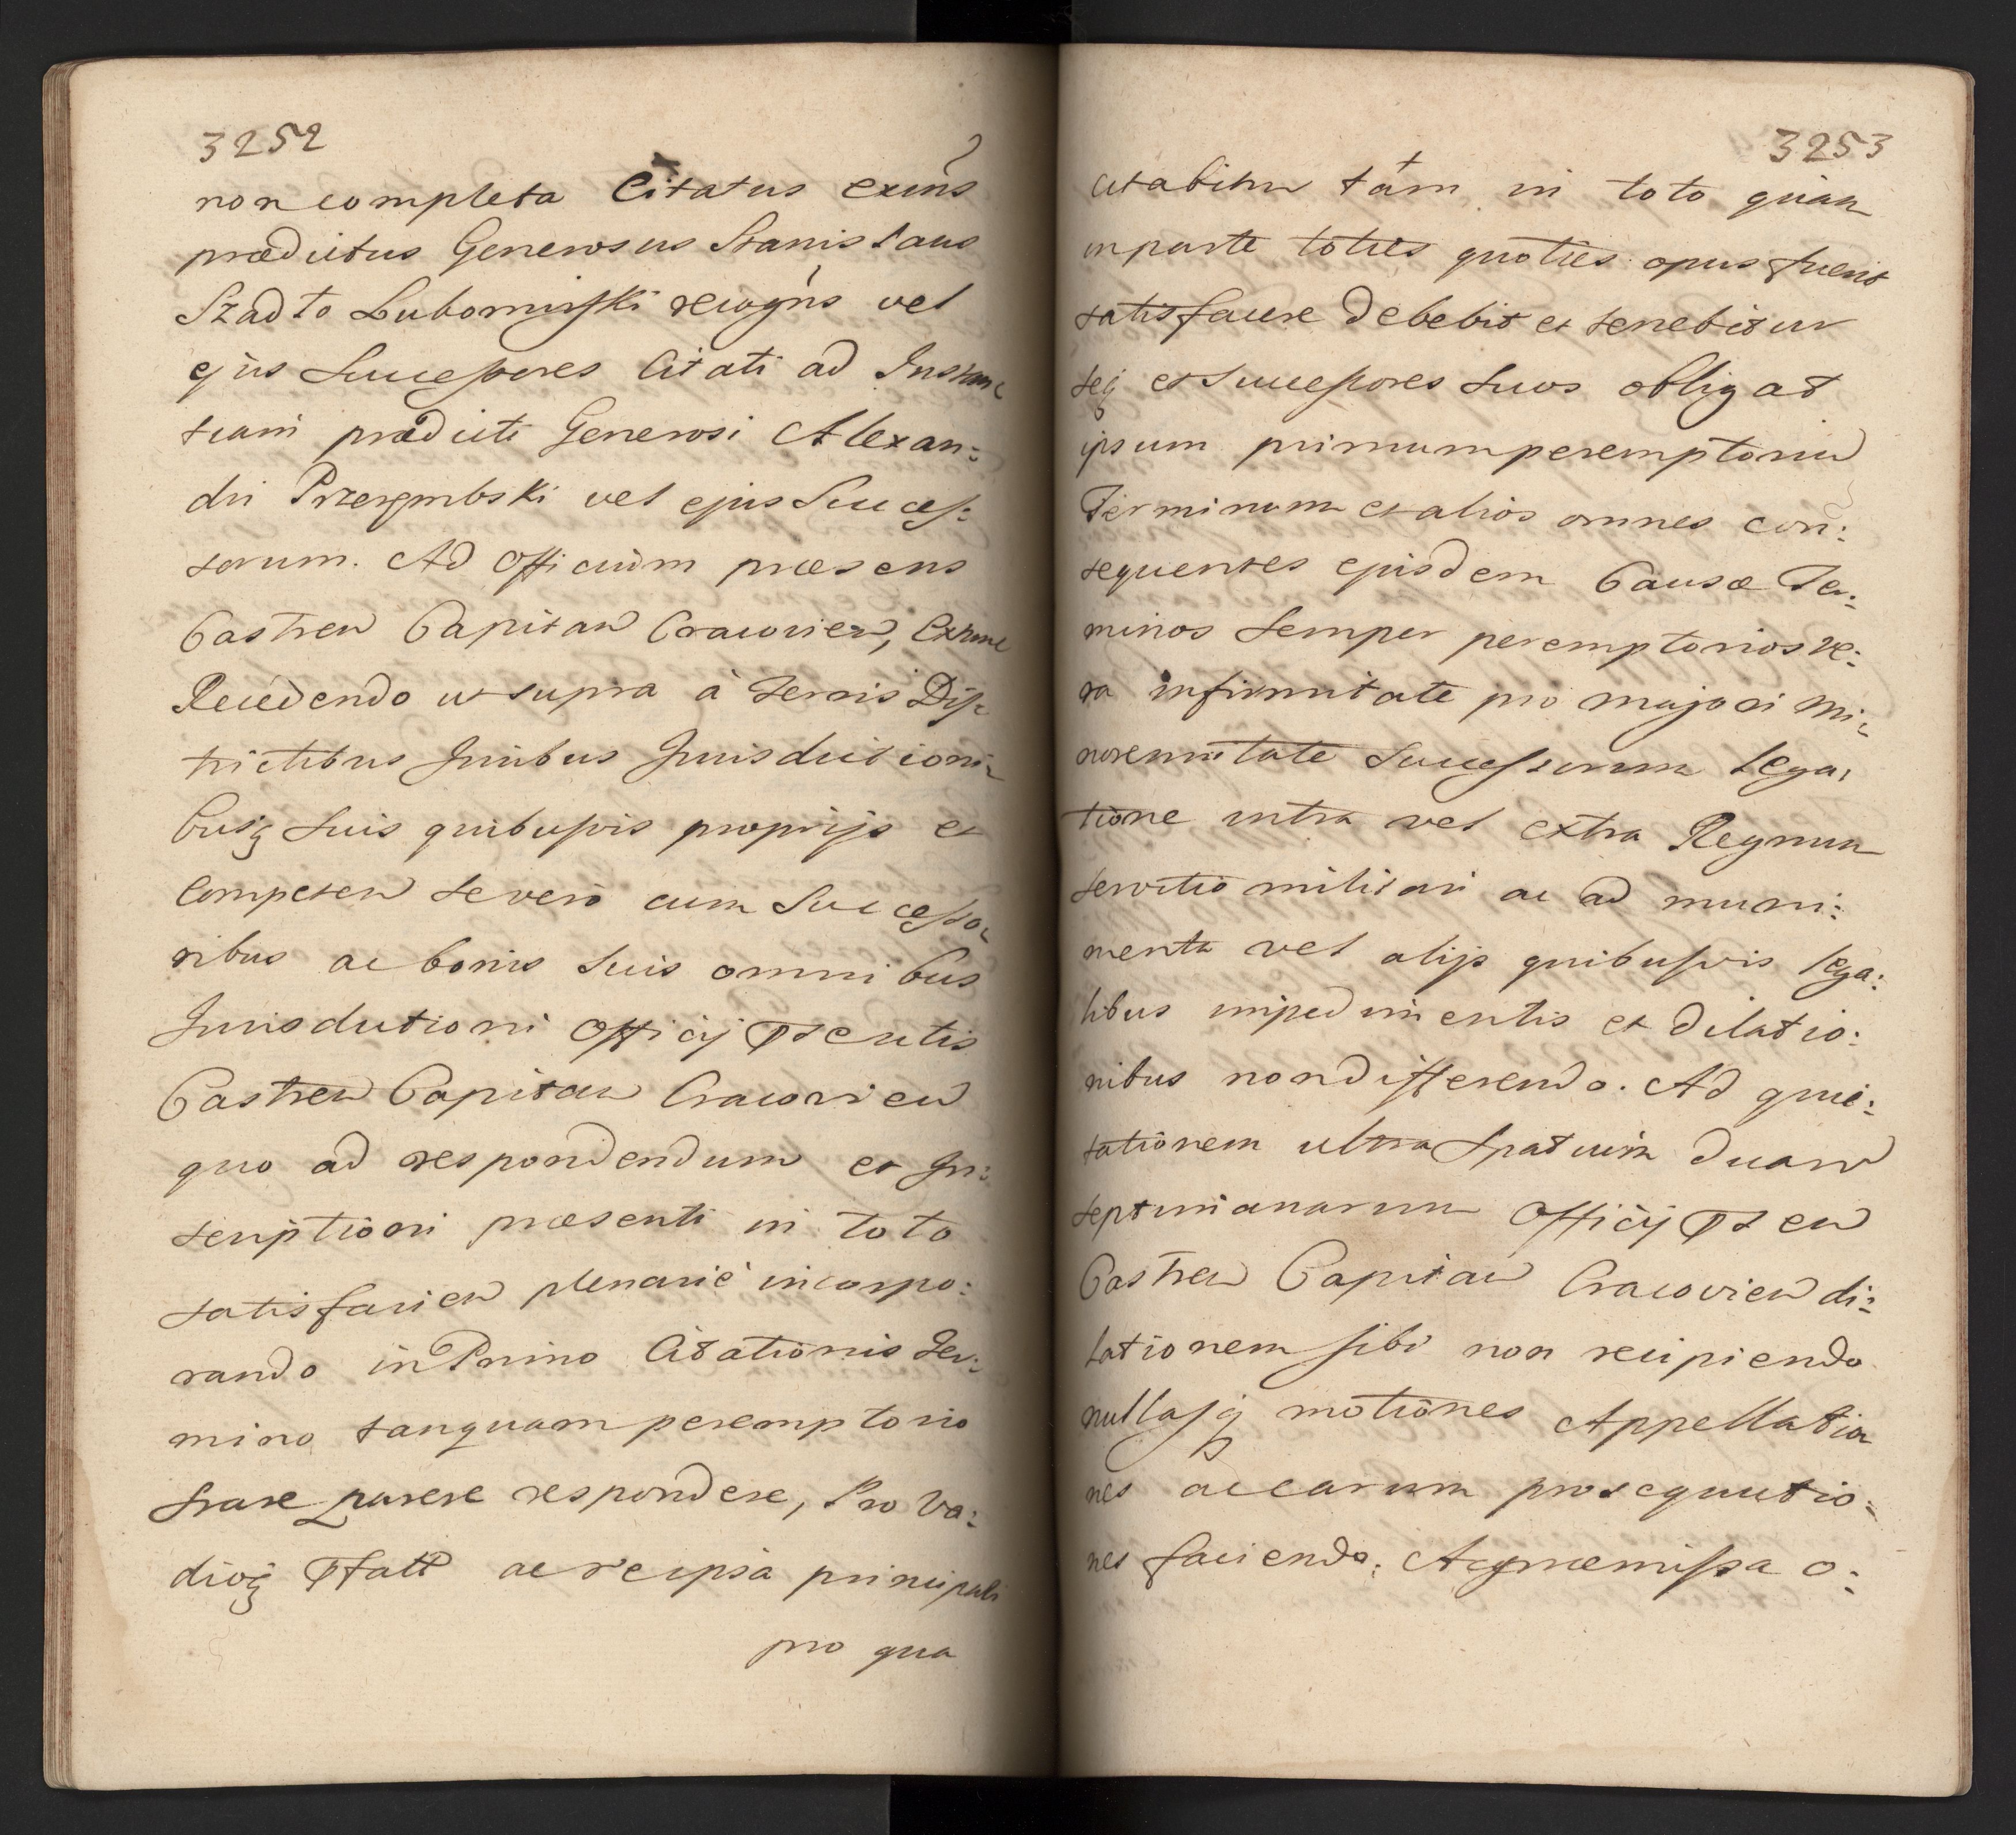 3252
non completa Citatus exuns
prædictus Generosus Stanislaus
Szadto Lubomirski recogns vel
ejus Successores Citati ad Instan:
tiam prædicti Generosi Alexan:
dri Przerembski vel ejus Succes:
sorum. Ad Officium præsens
Castren Capitan Cracovien,
Recedendo ut supra à Terris Dis:
trictibus Juribus Jurisdictioni:
busq suis quibusvis proprijs et
competen severò cum Successo:
ribus ac bonis suis omnibus
Jurisdictioni Officij Psentis
Castren Capitan Cracovien
quo ad respondendum et In:
scriptioni præsenti in toto
satisfacien plenariè incorpo:
rando in Primo Citationis Ter:
mino tanquam peremptorio
stare parere respondere, Pro Va:
dioq Pfatt ac re ipsa principali
pro qua
3253
citabitur tàm in toto quàm
in parte toties quoties opus fuerit
satisfacere debebit et tenebitur
seq et Successores suos obligat
ipsum primum peremptoriu
Terminum et alios omnes con:
sequentes ejusdem Causæ Ter:
minos semper peremptorios ve:
ra infirmitate pro majori Mi:
norennitate Successorum lega:
tione intra vel extra Regnum
servitio militari ac ad muni:
menta vel alijs quibusvis lega:
libus impedimentis et dilatio:
nibus non differendo. Ad quie:
tationem ultra Spatium duaru
septimanarum Officij Psen
Castren Capitan Cracovien di:
lationem sibi non recipiendo
nullasq motiones Appellatio
nes ac earum prosequutio:
nes faciendo. Acpræmissa o: